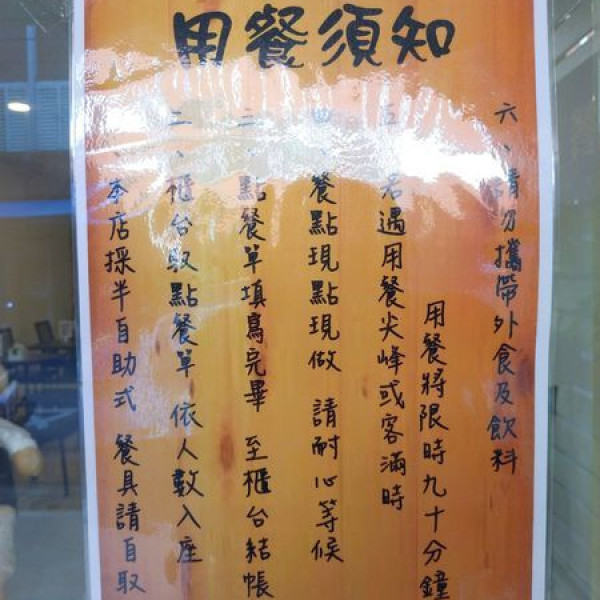 用餐須知
一、本店採半自助式 餐具請自取
二、櫃台取點餐單 依人數入座
三、點餐單填寫完畢 至櫃台結帳
四、餐點現點現做 請耐心等候
五、若遇用餐尖峰或客滿時
用餐將限時九十分鐘
六、請勿攜帶外食及飲料